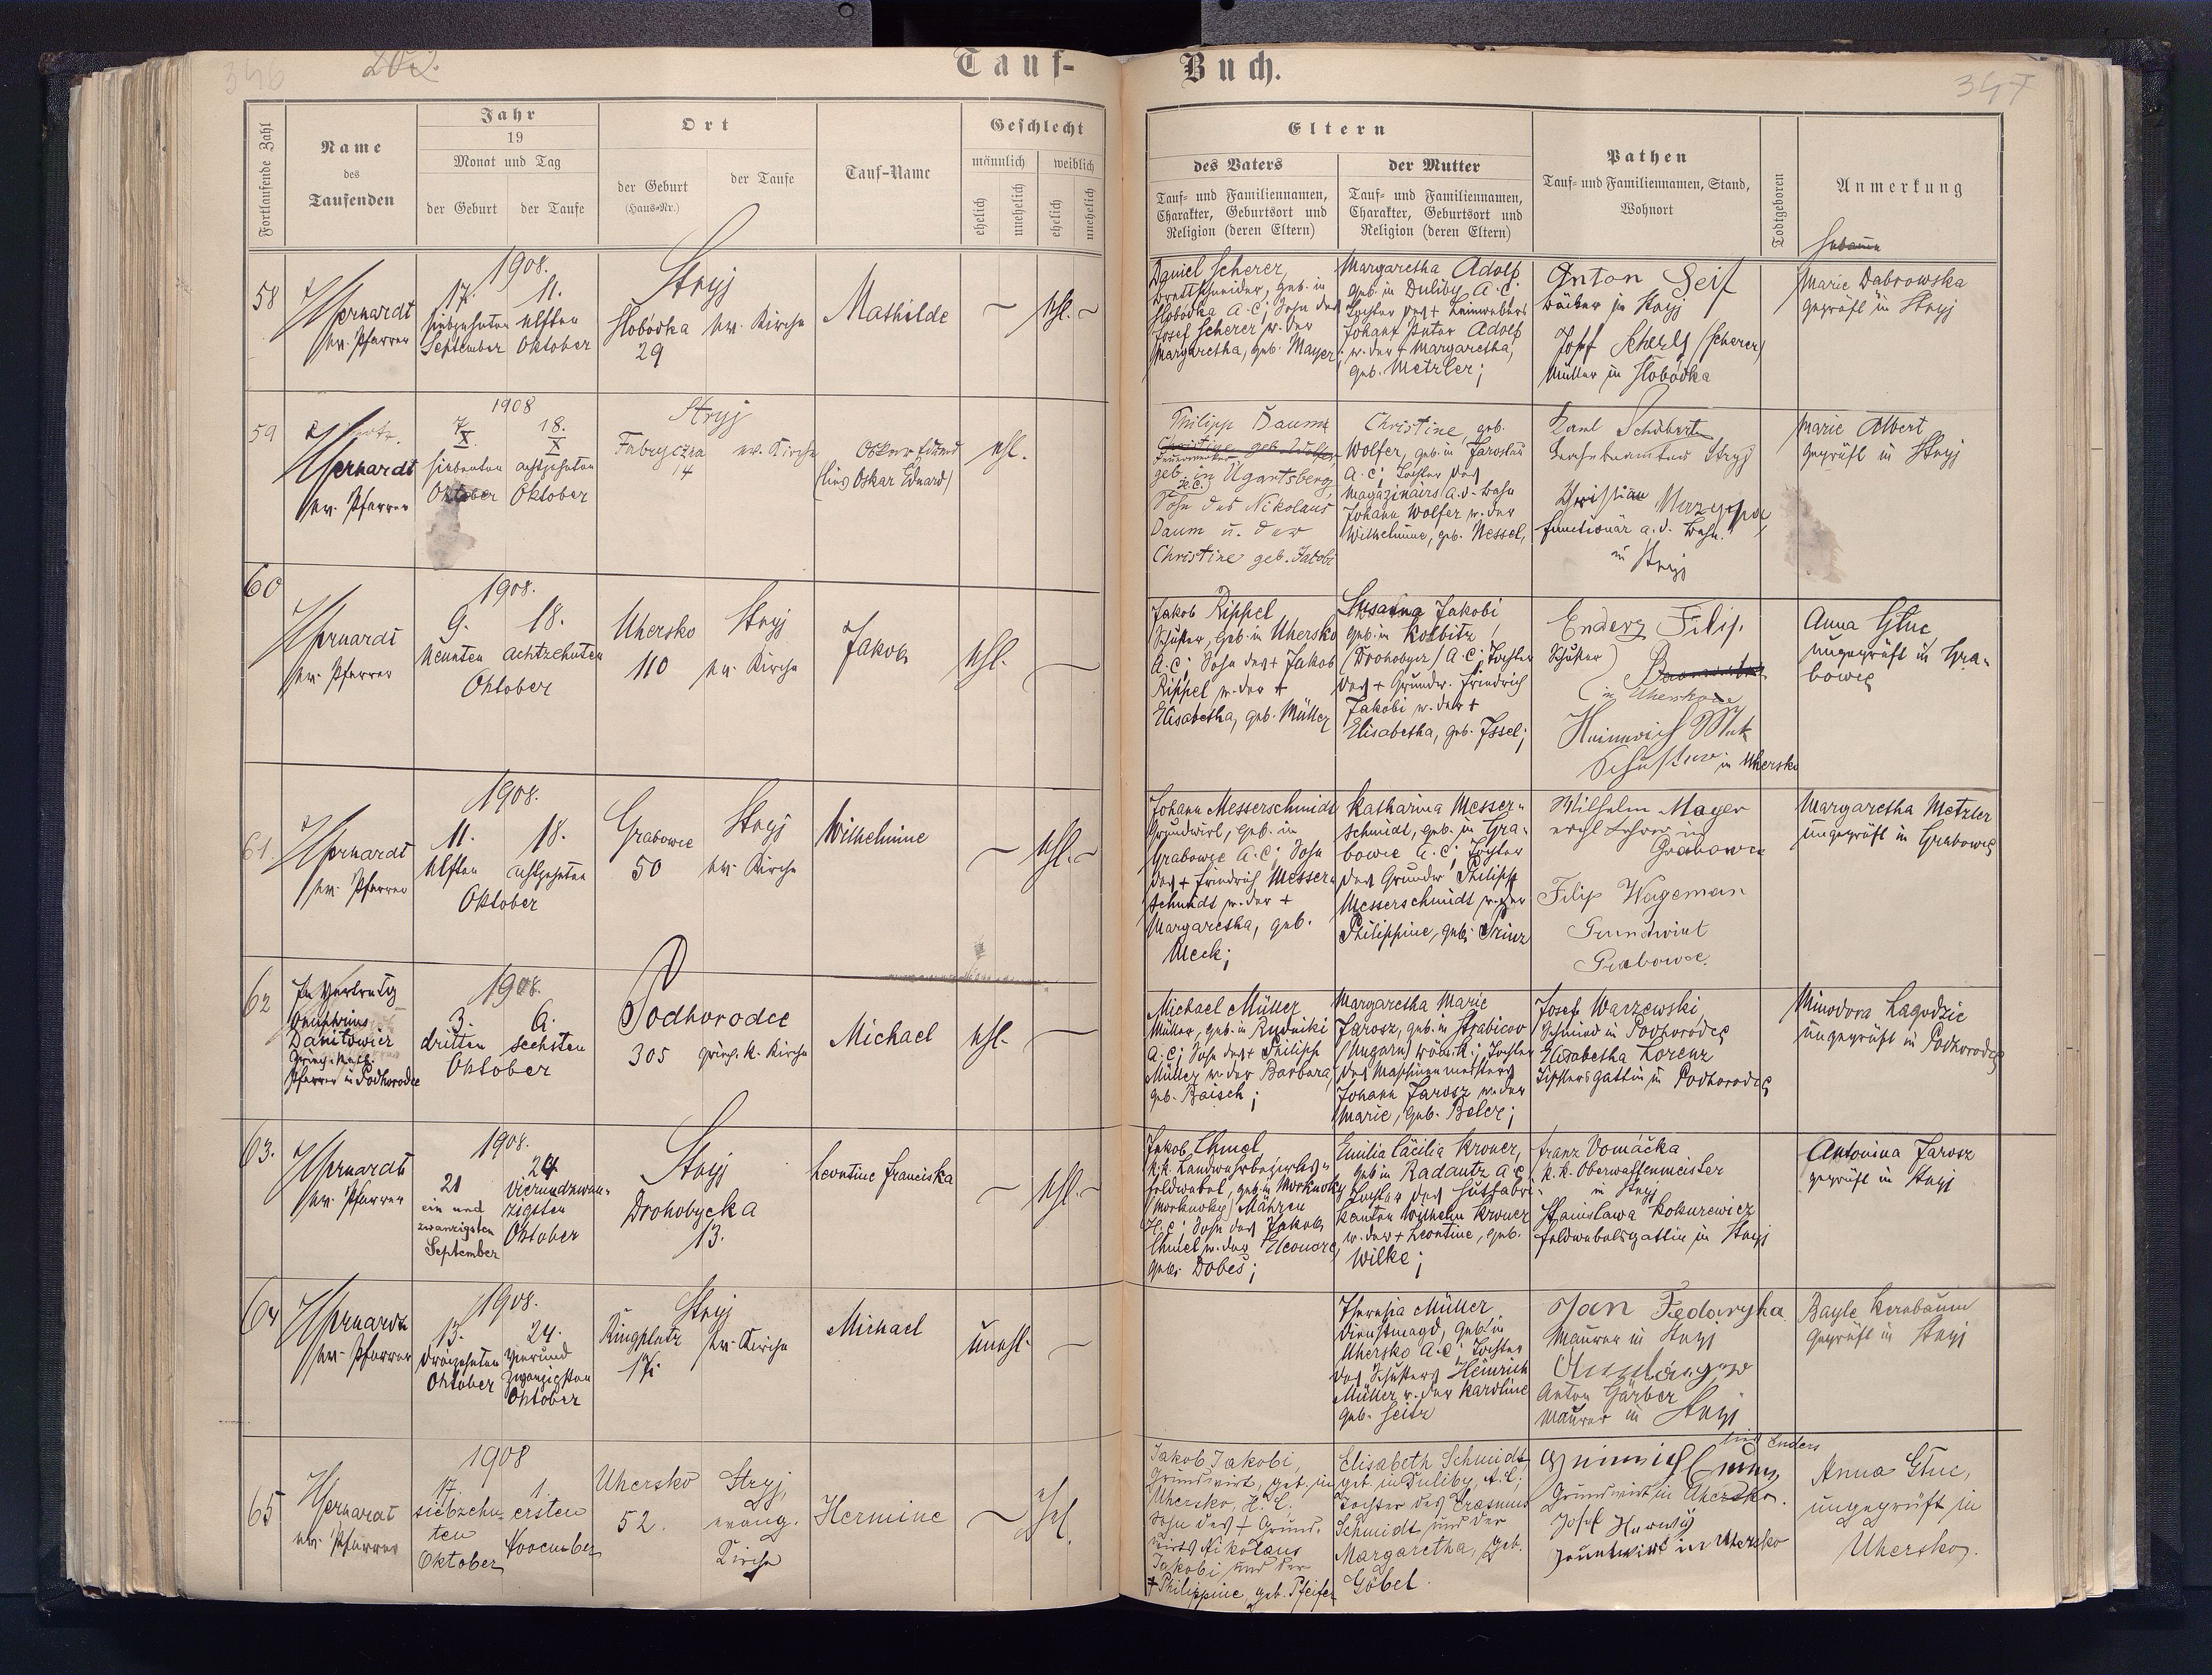 346
202.
Tauf-
Buch.
347
Fortlaufende Zahl
Name
des
Taufenden
Jahr
19
Monat und Tag
der Geburt
der Taufe
Ort
der Geburt
(Haus-Nr.)
der Taufe
Tauf-Name
Geschlecht
männlich
weiblich
ehelich
unehelich
ehelich
unehelich
Eltern
des Vaters
Tauf- und Familiennamen,
Charakter, Geburtsort und
Religion (deren Eltern)
der Mutter
Tauf- und Familiennamen,
Charakter, Geburtsort und
Religion (deren Eltern)
Pathen
Tauf- und Familiennamen, Stand,
Wohnort
Todtgeboren
Anmerkung
58
ev. Pfarrer
1908.
17.
siebzehnten
September
11.
elften
Oktober
Stryj
Slobódka
29
ev. Kirche
Mathilde
ehl.
Daniel Scherer,
Brettschneider, geb. in
Slobódka A.C; Sohn des
Josef Scherer u. der
Margaretha, geb. Mayer;
Margaretha Adolf
geb. in Duliby A.C.
Tochter des + Leinwebers
Johann Peter Adolf
u. der + Margaretha,
geb. Metzler;
Anton Seif
Bäcker in Stryj
Josef Scherly (Scherer)
Müller in Slobódka
Marie Dabrowska
geprüft in Stryj
59
ev. Pfarrer
1908
7/X
siebenten
Oktober
18.
X
achtzehnten
Oktober
Stryj
Fabryczna
14
ev. Kirche
Oskar Eduard
(lies Oskar Eduard)
ehl.
Philipp Daum
Christine geb. Wolfer
geb. in Ugartsberg,
Sohn des Nikolaus
Daum u. der
Christine geb. Jakobi
Christine, geb.
Wolfer, geb. in Jaroslau
A.C; Tochter des
Magazinärs a.d. Bahn
Johann Wolfer u. der
Wilhelmine, geb. Nessel,
Karl Schubert
Bahnbeamter Stryj
Christian Mazeppa
Functionär a.d. Bahn
in Stryj
Marie Albert
geprüft in Stryj
60
ev. Pfarrer
1908.
9.
Neunten
18.
achtzehnten
Oktober
Uhersko
110
Stryj
ev. Kirche
Jakob
ehl.
Jakob Rippel
Schuster, geb. in Uhersko
A.C; Sohn des + Jakob
Rippel u. der +
Elisabetha, geb. Müller
Susanna Jakobi
geb. in Kolbitz
(Drohobycz) A.C; Tochter
des + Grundw. Friedrich
Jakobi u. der +
Elisabetha, geb. Issel;
Enders Filip.
Schuster
in Uhersko
Heinrich
Schuster in Uhersko
Anna Gluc
ungeprüft in Gra-
bowce
61.
ev. Pfarrer
1908.
11.
elften
18.
achtzehnten
Oktober
Grabowce
50
Stryj
ev. Kirche
Wilhelmine
ehl.
Johann Messerschmidt
Grundwirt, geb. in
Grabowce A.C; Sohn
des + Friedrich Messer-
schmidt u. der +
Margaretha, geb.
Meck;
Katharina Messer-
schmidt, geb. in Gra-
bowce A.C; Tochter
des Grundw. Philipp
Messerschmidt u. der
Philippine, geb. Prinz
Wilhelm Mayer
evgl. Lehrer in
Grabowce
Filip Wageman
Grundwirt
Grabowce.
Margaretha Metzler
ungeprüft in Grabowce
62
In Vertretg
Onuphrius
Danilowicz
Griech. kath.
Pfarrer in Podhorodce
1908.
3.
dritten
6.
sechsten
Oktober
Podhorodce
305
griech. k. Kirche
Michael
ehl.
Michael Müller
Müller, geb. in Rudniki
A.C; Sohn des + Philipp
Müller u. der Barbara,
geb. Baisch;
Margaretha Marie
Jarosz, geb. in Strabicov
(Ungarn) röm. k.; Tochter
des Maschinenmeisters
Johann Jarosz u. der
Marie, geb. Belcz;
Josef Waszewski,
Schmied in Podhorodce
Elisabetha Lorenz
Tischlersgattin in Podhorodce
Minodora Lagodzic
ungeprüft in Podhorodce
63.
ev. Pfarrer
1908.
21
ein und
zwanzigsten
September
24.
vierundzwan-
zigsten
Oktober
Stryj
Drohobycka
13.
Leontine Franciska
ehl.
Jakob Chmel
k.k. Landwehrbezirks-
feldwebel, geb. in Morkowky
(Morkuvky) Mähren
H.C; Sohn des Jakob
Chmel u. der Eleonore,
geb. Dobeš;
Emilia Cäcilia Kroner,
geb. in Radautz A.C;
Tochter des Hutfabri-
kanten Wilhelm Kroner
u. der + Leontine, geb.
Wilke;
Franz Domáčka
k. k. Oberwaffenmeister
in Stryj
Stanislawa Kokurewicz
Feldwebelsgattin in Stryj
Antonina Jarosz
geprüft in Stryj
64
ev. Pfarrer
1908.
13.
dreizehnten
Oktober
24.
vierund
zwanzigsten
Oktober
Stryj
Ringplatz
17.
ev. Kirche
Michael
unehl.
Theresia Müller
Dienstmagd, geb. in
Uhersko A.C; Tochter
des Schusters Heinrich
Müller u. der Karoline
geb. Seitz
Jan Fedaryha
Maurer in Stryj
Anton Gärber
Maurer in Stryj
Bayle Kernbaum
geprüft in Stryj
65
ev. Pfarrer
1908
17.
siebzehn-
ten
Oktober
1.
ersten
November
Uhersko
52.
Stryj,
evang.
Kirche
Hermine
ehel.
Jakob Jakobi,
Grundwirt, geb. in
Uhersko, H.C.
Sohn des + Grund-
wirts Nikolaus
Jakobi und der
+ Philippine, geb. Pfeifer
Elisabeth Schmidt,
geb. in Duliby, A.C;
Tochter des Erasmus
Schmidt und der
Margaretha, geb.
Göbel.
lies Enders
Grundwirt in Uhersko.
Josef Herwig
Grundwirt in Uhersko
Anna Gluc,
ungeprüft in
Uhersko.